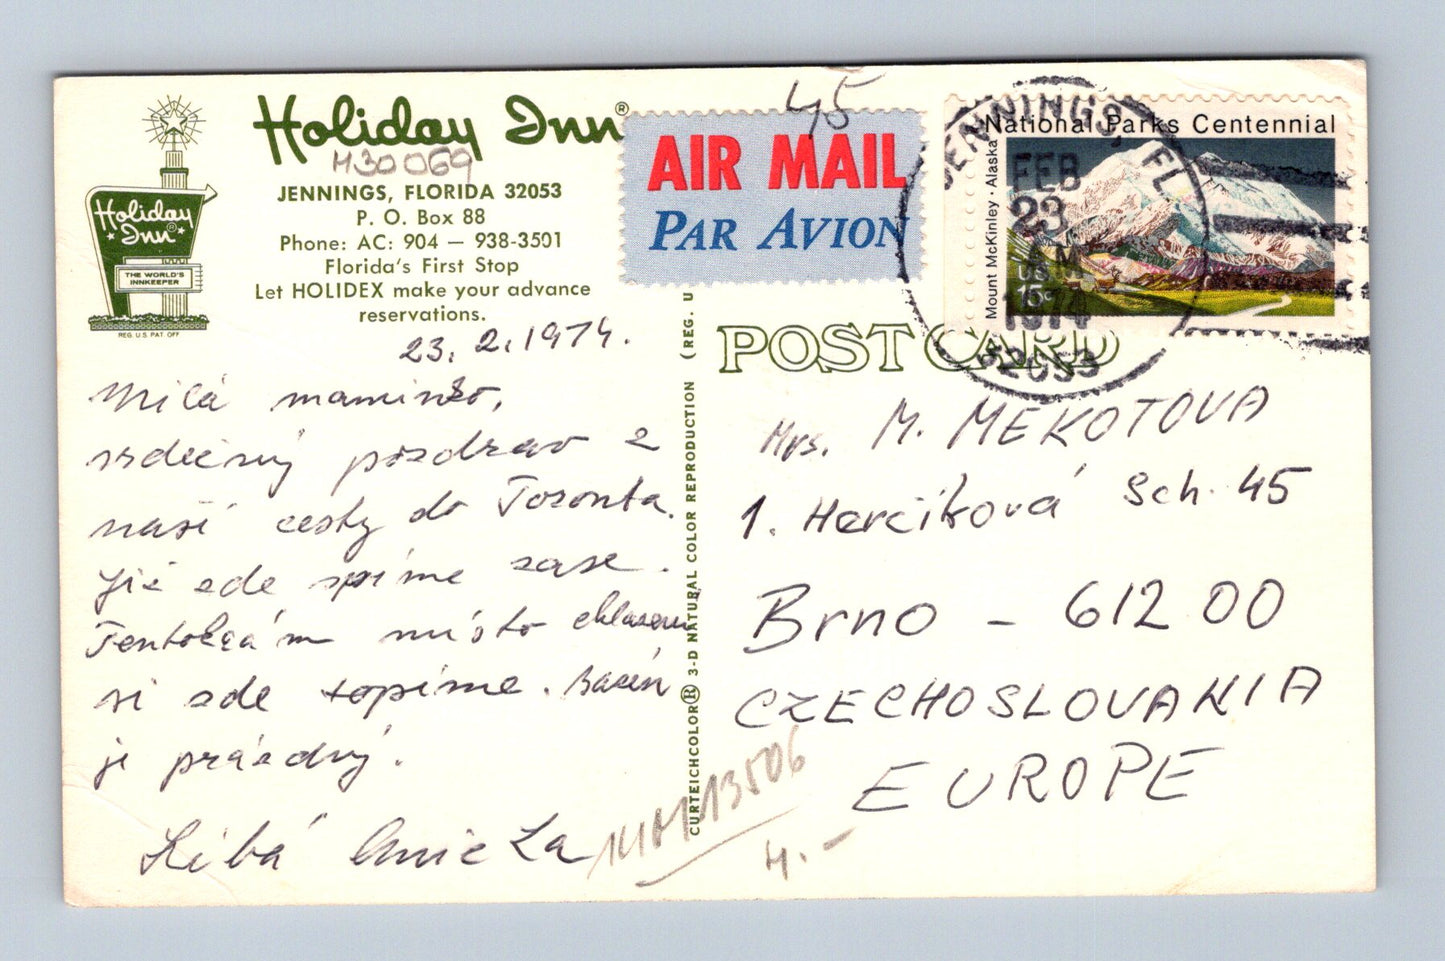 Holiday Inn®
H30069
JENNINGS, FLORIDA 32053
P. O. Box 88
Phone: AC: 904 — 938-3501
Florida's First Stop
Let HOLIDEX make your advance
reservations.
Holiday
Inn®
THE WORLD'S
INNKEEPER
REG. U.S. PAT. OFF
23. 2. 1974.
Milá maminko,
srdečný pozdrav z
naší cesty do Toronta.
Již zde spíme zase.
Tentokrám místo chlazení
si zde topíme. Bazén
je prázdný.
Líbá Anička
CURTEICHCOLOR® 3-D NATURAL COLOR REPRODUCTION (REG. U
AIR MAIL
PAR AVION
45
National Parks Centennial
Mount McKinley · Alaska
US
15c
JENNINGS, FL
FEB
23
AM
1974
32053
POST CARD
Mrs. M. MEKOTOVA
1. Herčíková Sch. 45
Brno - 612 00
CZECHOSLOVAKIA
EUROPE
13506
4.-